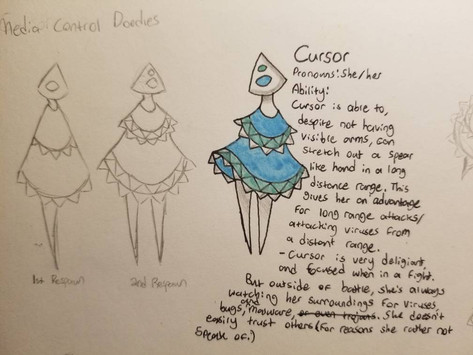 Media Control Doodles
Cursor
Pronouns: She/her
Ability:
Cursor is able to,
despite not having
visible arms, can
stretch out a spear
like hand in a long
distance range. This
gives her an advantage
for long range attacks/
attacking viruses from
a distant range.
- Cursor is very deligiant,
and focused when in a fight.
But outside of battle, she's always
watching her surroundings for viruses,
bugs, and malware, or even trojans. She doesn't
easily trust others (for reasons she rather not
speak of.)
1st Respawn
2nd Respawn